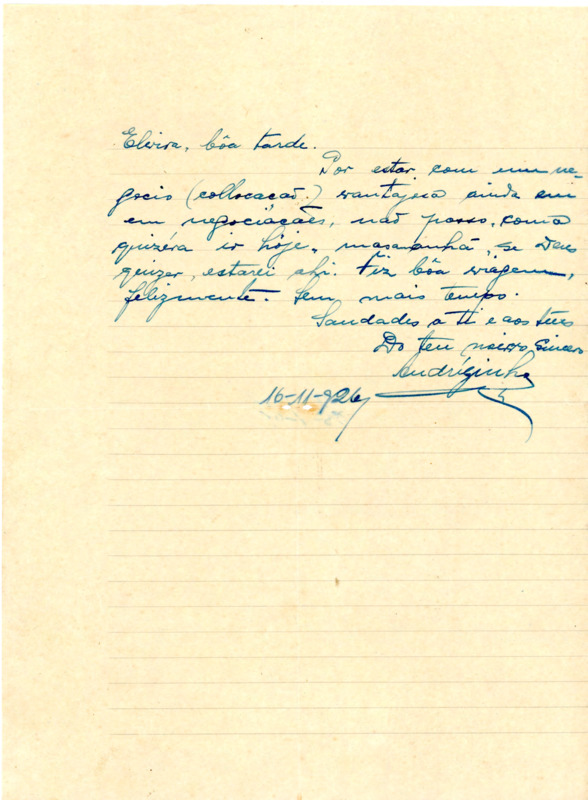 Elvira, bôa tarde.
Por estar com um ne-
gocio (collocacaõ.) vantajosa ainda em
em negociaçaẽs, naõ posso, como
quizéra ir hoje, mas amanhã, se Deus
quizer, estarei ahi. Fiz bôa viagem,
felizmente. Sem mais tempo.
Saudades a ti e aos teus
Do teu noivo sincero
Andréginho
16-11-926